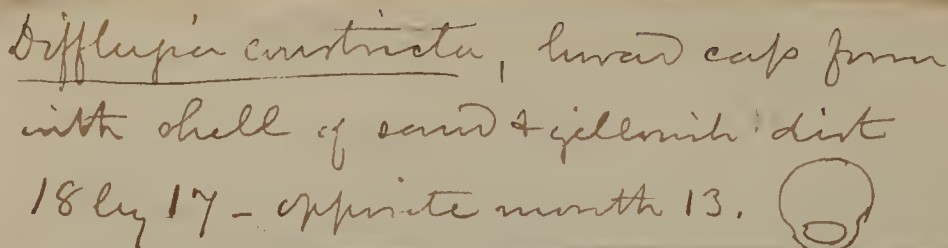 Difflugia constricta, broad cap form
with shell of sand & yellowish dirt
18 by 17 – opposite mouth 13.